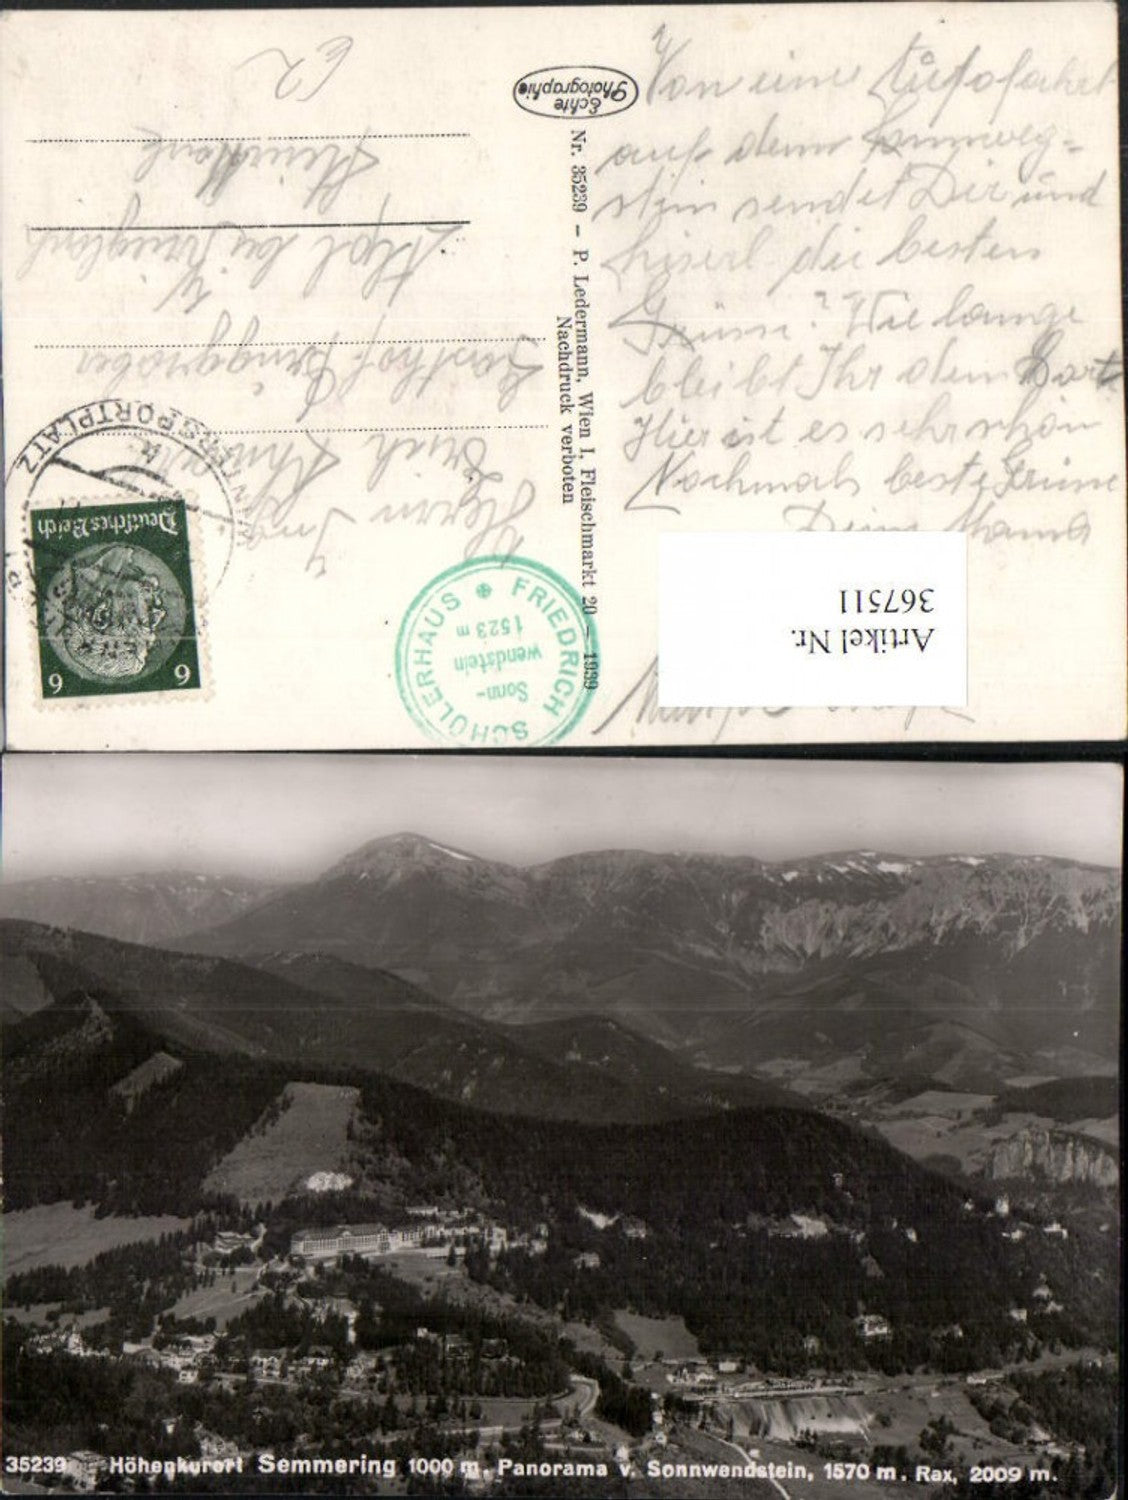 Von einer Autofahrt
auf dem Sonnweg-
stein sendet Dir und
die besten
Grüsse! Wie lange
bleibt Ihr denn dort
Hier ist es sehr schön
Nochmals beste Grüsse
Deine Mama
Echte
Photographie
Nr. 35239 – P. Ledermann, Wien I, Fleischmarkt 20 – 1939
Nachdruck verboten
Herrn Ing.
Erich
Gasthof
bei Krieglach
Steiermark
Deutsches Reich
6 6
SPORTPLATZ
FRIEDRICH SCHÜLERHAUS
Sonn-
wendstein
1523 m
Artikel Nr.
367511
35239 Höhenkurort Semmering 1000 m. Panorama v. Sonnwendstein, 1570 m. Rax, 2009 m.